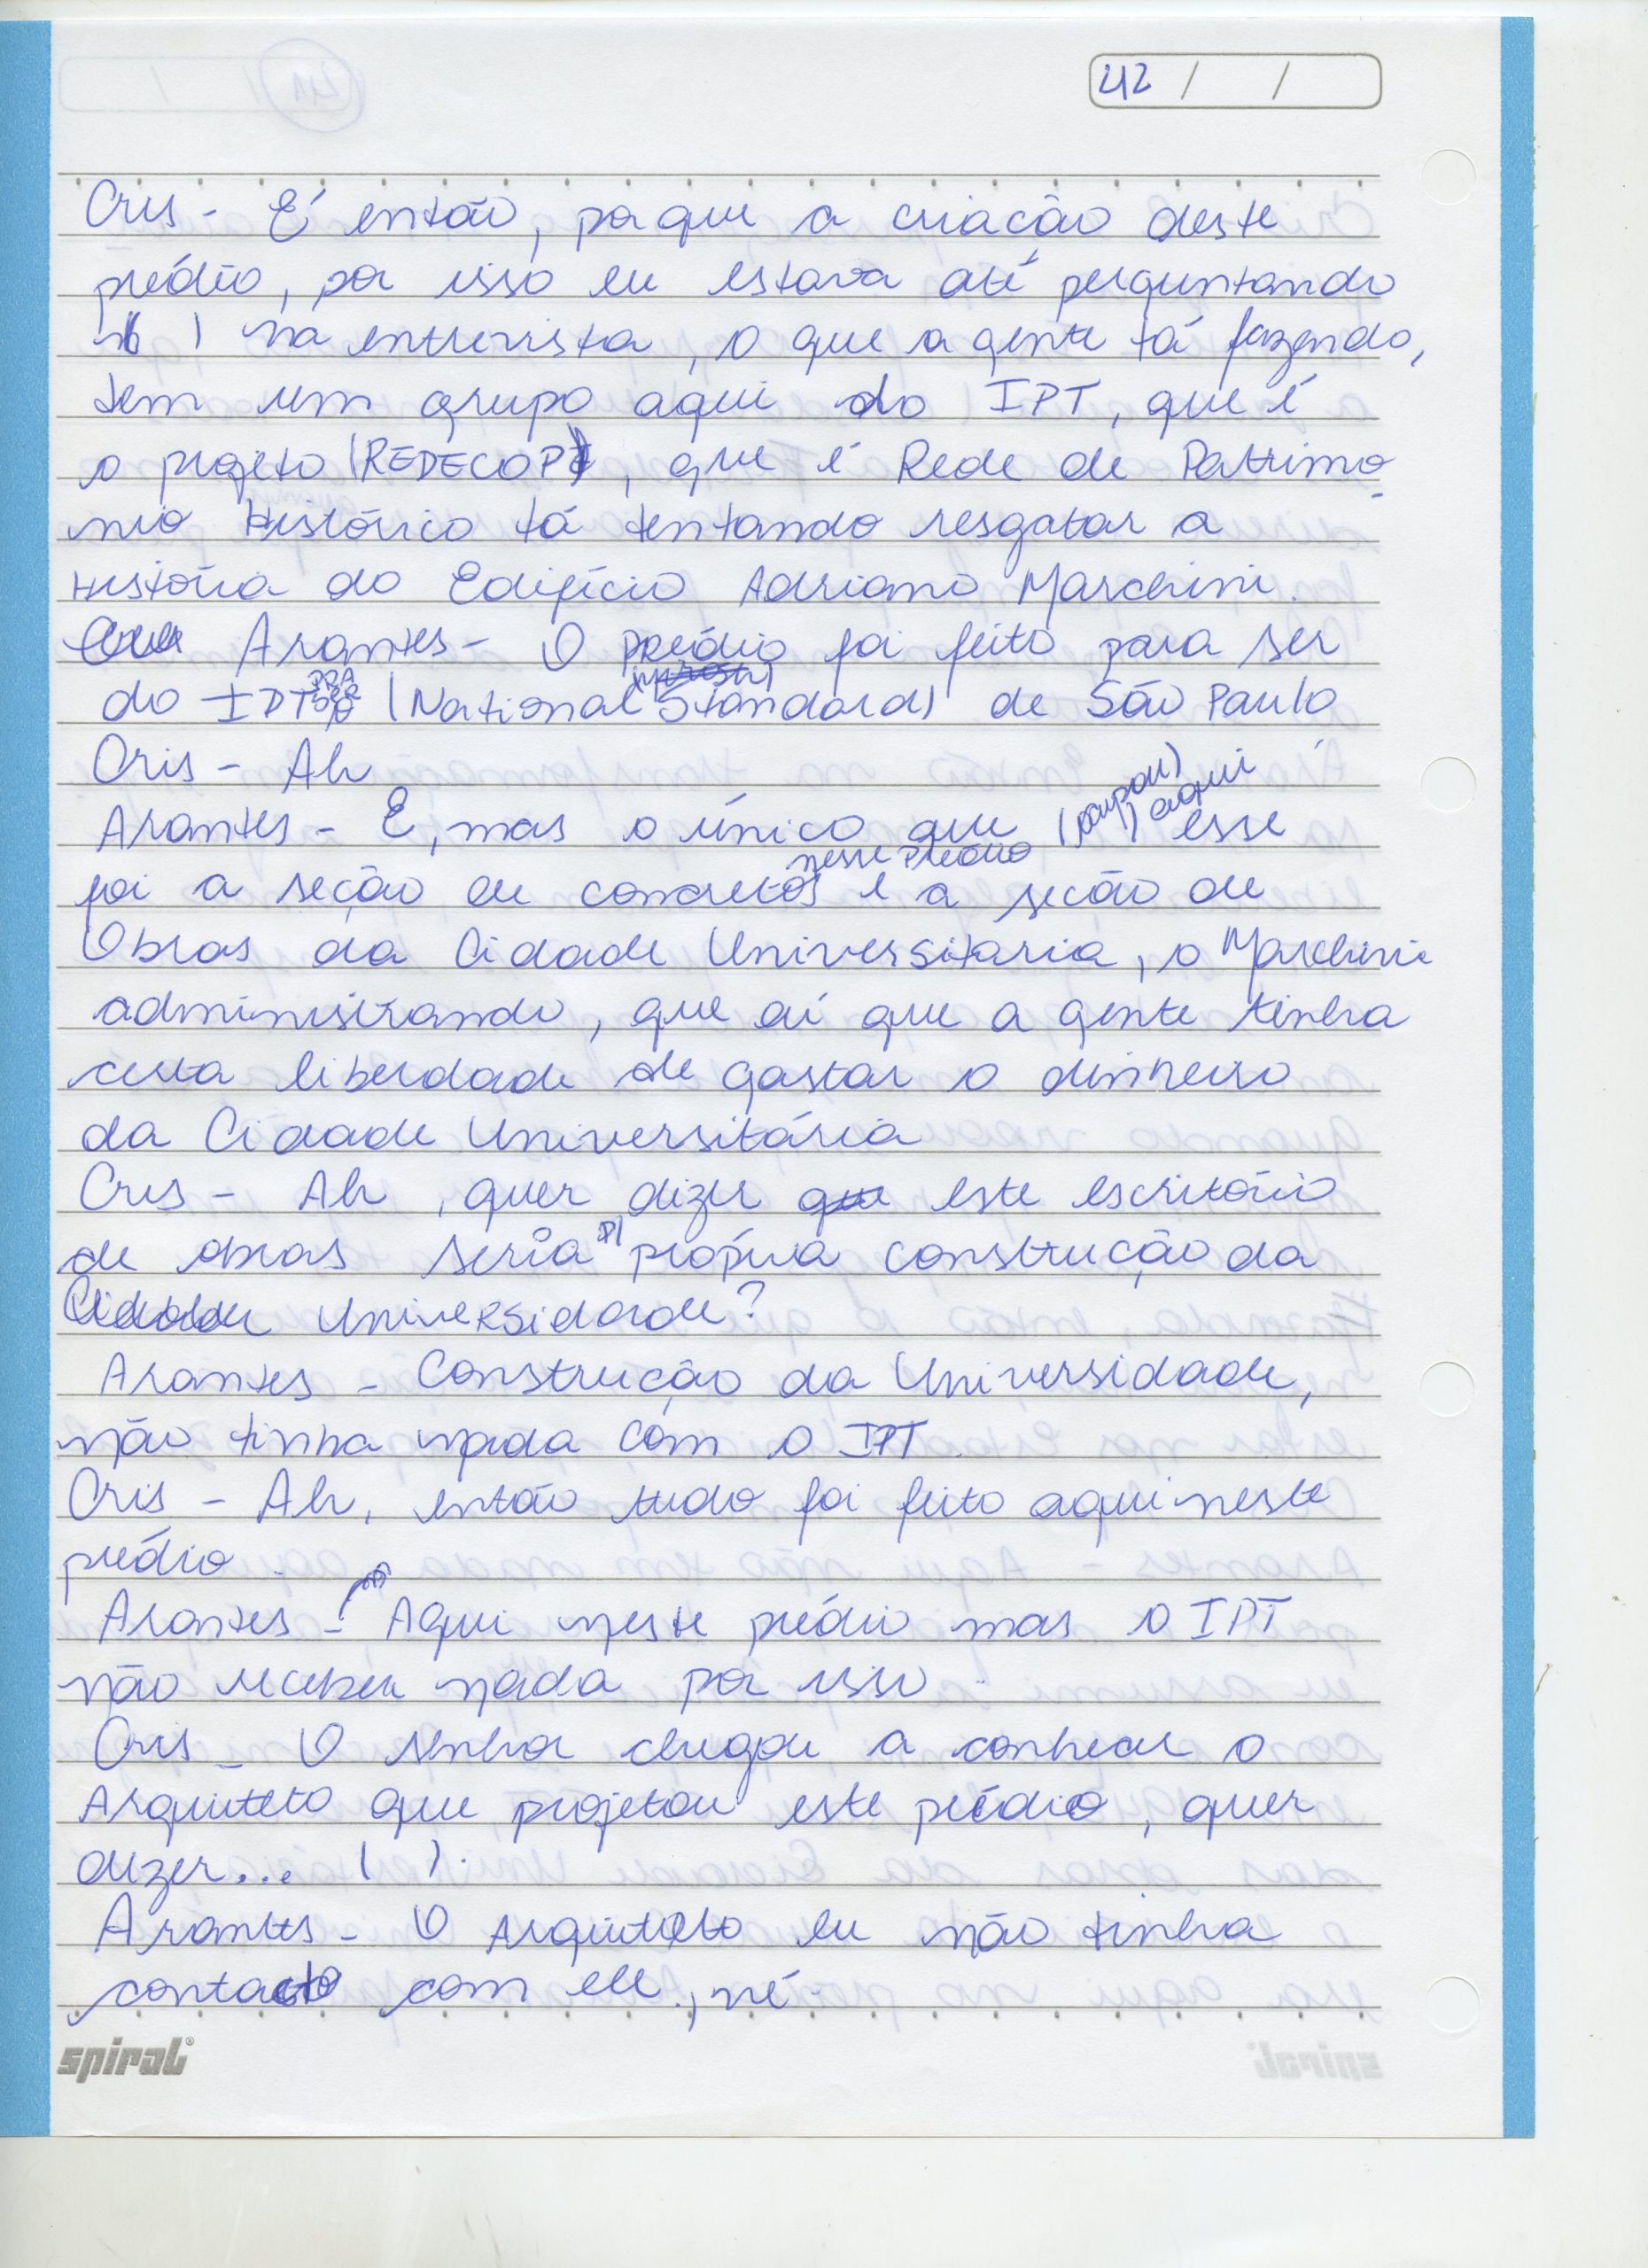 42 / /
Cris - É então, porque a criação deste
prédio, por isso eu estava até perguntando
( ) na entrevista, o que a gente tá fazendo,
tem um grupo aqui do IPT, que é
o projeto (REDECOP), que é Rede de Patrimo
nio Histórico tá tentando resgatar a
História do Edifício Adriano Marchini.
Arantes - O prédio foi feito para ser
do IPT PRA SER O (National Standard) de São Paulo
Cris - Ah
Arantes - É, mas o único que (ocupou) aqui esse
nesse prédio
foi a seção de concretos e a seção de
Obras da Cidade Universitária, o Marchini
administrando, que aí que a gente tinha
certa liberdade de gastar o dinheiro
da Cidade Universitária
Cris - Ah, quer dizer que este escritório
de obras seria p/ própria construção da
Cidade Universidade?
Arantes - Construção da Universidade,
não tinha nada com o IPT.
Cris - Ah, então tudo foi feito aqui neste
prédio.
Arantes - Aqui neste prédio mas o IPT
não recebeu nada por isso.
Cris - O senhor chegou a conhecer o
Arquiteto que projetou este prédio, quer
dizer... ( ).
Arantes - O Arquiteto eu não tinha
contacto com ele, né.
spiral®